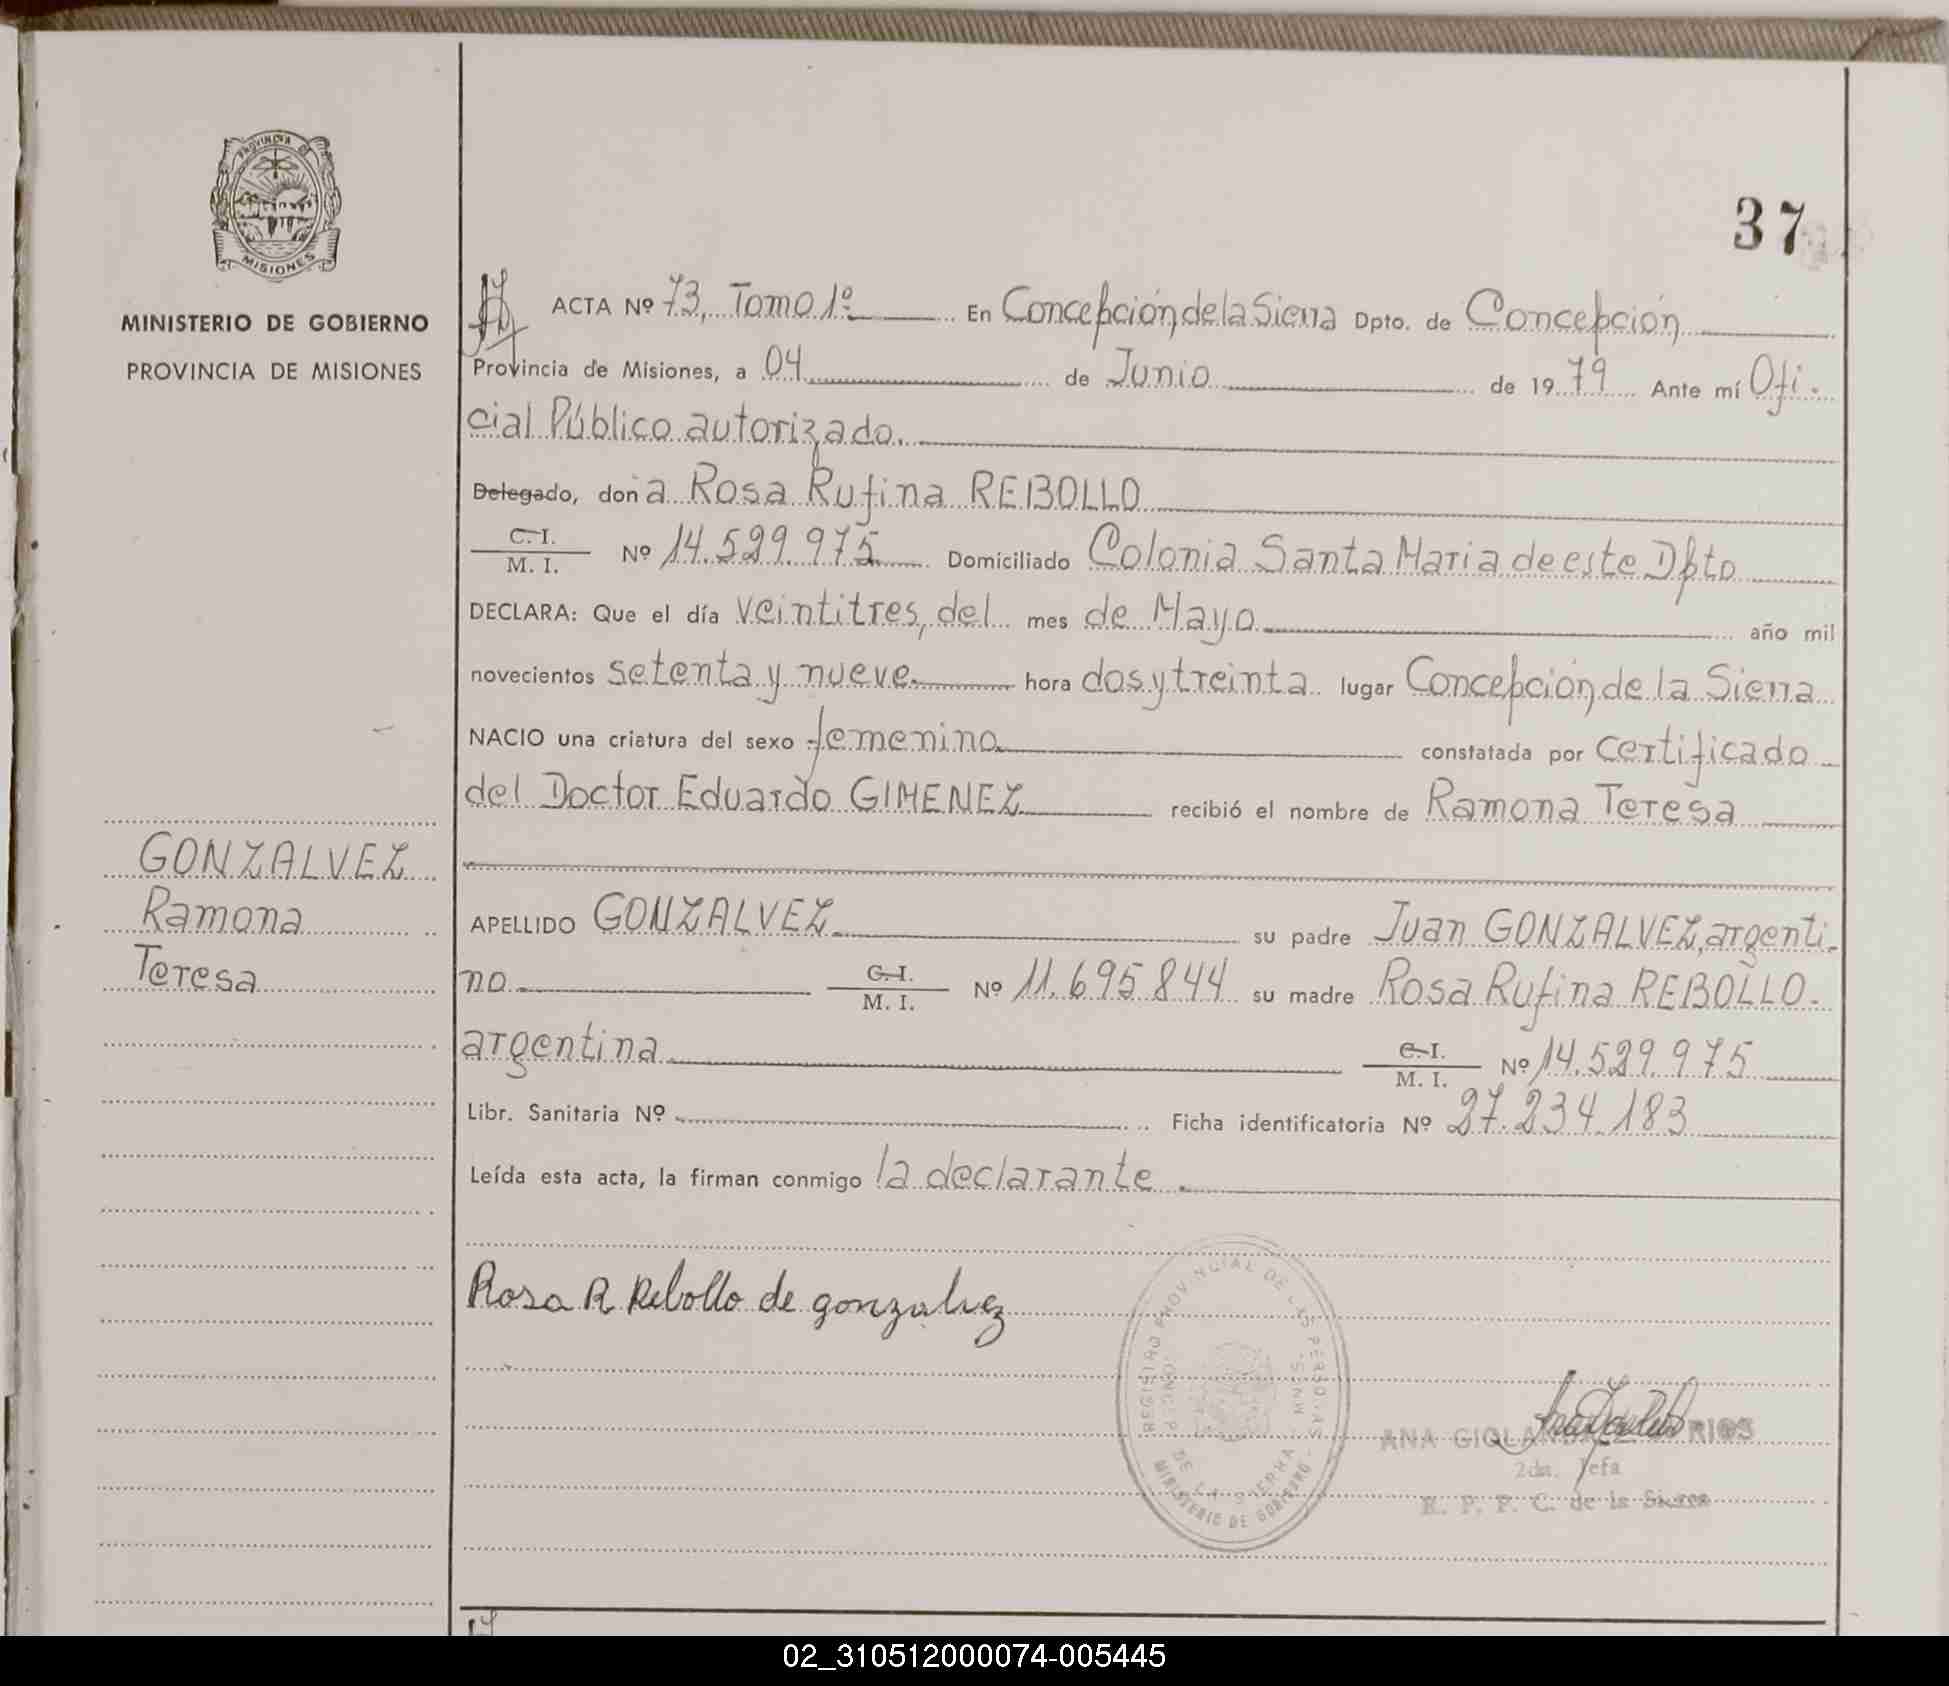 PROVINCIA DE
MISIONES
MINISTERIO DE GOBIERNO
PROVINCIA DE MISIONES
37
ACTA Nº 73, Tomo 1º En Concepción de la Sierra Dpto. de Concepción
Provincia de Misiones, a 04 de Junio de 1979 Ante mí Ofi-
cial Público autorizado.
Delegado, doña Rosa Rufina REBOLLO
C. I.
M. I. Nº 14.529.975 Domiciliado Colonia Santa Maria de este Dpto
DECLARA: Que el día veintitres, del mes de Mayo año mil
novecientos setenta y nueve. hora dos y treinta lugar Concepción de la Sierra
NACIO una criatura del sexo femenino constatada por certificado
del Doctor Eduardo GIMENEZ recibió el nombre de Ramona Teresa
GONZALVEZ
Ramona
Teresa
APELLIDO GONZALVEZ su padre Juan GONZALVEZ, argenti-
no C. I.
M. I. Nº 11.695.844 su madre Rosa Rufina REBOLLO.
argentina C. I.
M. I. Nº 14.529.975
Libr. Sanitaria Nº Ficha identificatoria Nº 27.234.183
Leída esta acta, la firman conmigo la declarante.
Rosa R Rebollo de gonzalvez
REGISTRO PROVINCIAL DE LAS PERSONAS
DE LA SIERRA
MINISTERIO DE GOBIERNO
ANA RIOS
2da. Jefa
R. P. P. C. de la Sierra
02_310512000074-005445